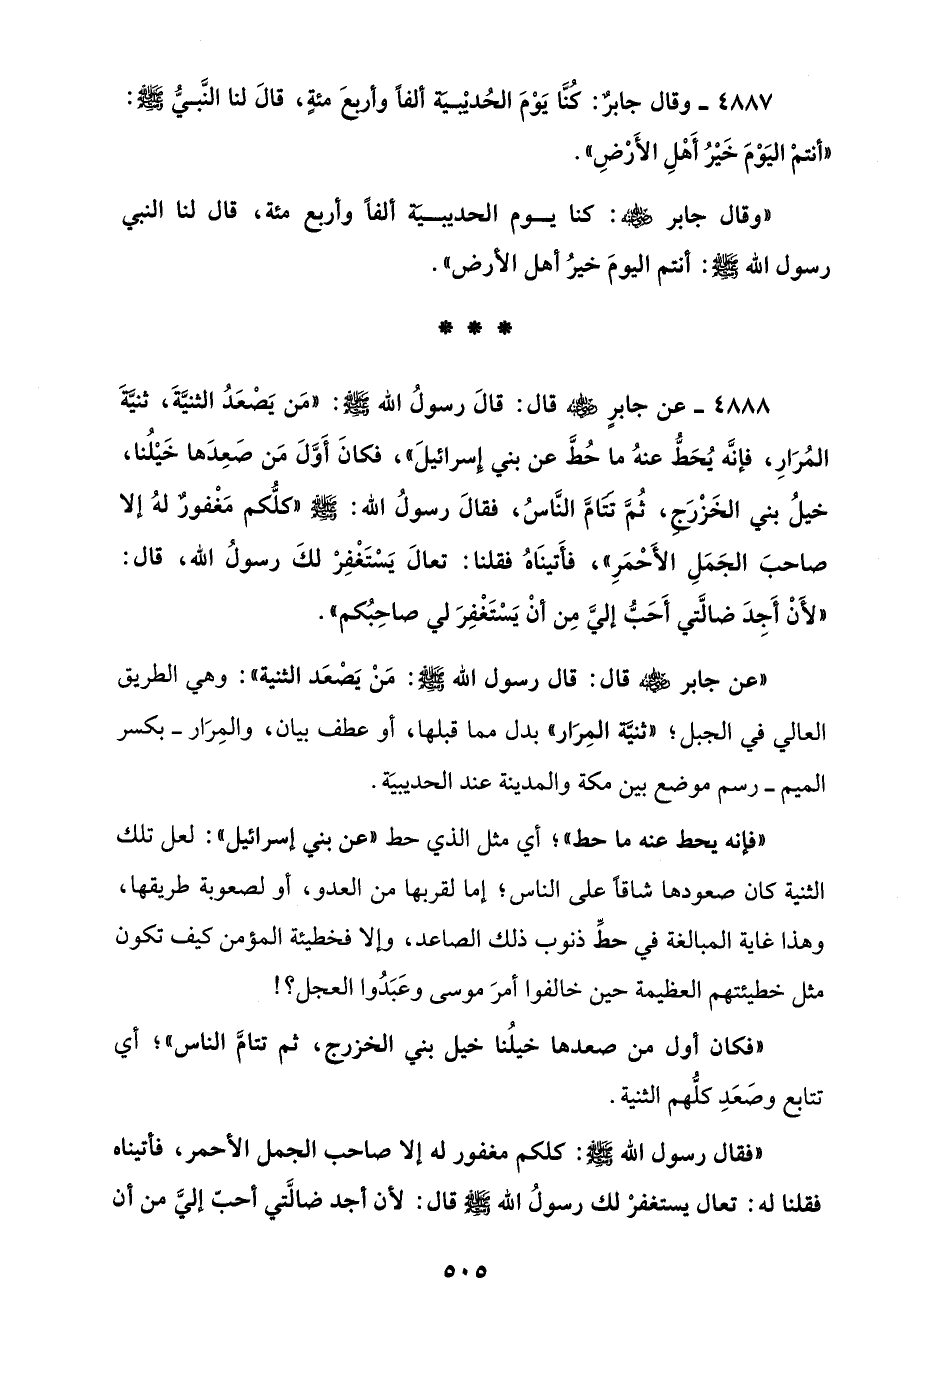 ٤٨٨٧ ـ وقال جابرٌ: كُنَّا يَوْمَ الحُديْبـيَة ألفاً وأربعَ مئةٍ، قالَ لنا النَّبـيُّ ﷺ:
«أنتمْ اليَوْمَ خَيْرُ أَهْلِ الأَرْضِ».
«وقال جابر ﷺ: كنا يـوم الحديبـيَة ألفاً وأربع مئة، قال لنا النبي
رسول الله ﷺ: أنتم اليومَ خيرُ أهل الأرض».
* * *
٤٨٨٨ ـ عن جابرٍ ﷺ قال: قالَ رسولُ الله ﷺ: «مَن يَصْعَدُ الثنيَّةَ، ثنيَّةَ
المُرَارِ، فإنَّه يُحَطُّ عنهُ ما حُطَّ عن بني إسرائيلَ»، فكانَ أَوَّلَ مَن صَعِدَها خَيْلُنا،
خيلُ بني الخَزْرَجِ، ثُمَّ تَتَامَّ النَّاسُ، فقالَ رسولُ الله: ﷺ «كلُّكم مَغْفورٌ لهُ إلا
صاحبَ الجَمَلِ الأَحْمَرِ»، فأتينَاهُ فقلنا: تعالَ يَسْتَغْفِرْ لكَ رسولُ الله، قال:
«لأَنْ أَجِدَ ضالَّتي أَحَبُّ إليَّ مِن أنْ يَسْتَغْفِرَ لي صاحِبُكم».
«عن جابر ﷺ قال: قال رسول الله ﷺ: مَنْ يَصْعَد الثنية»: وهي الطريق
العالي في الجبل؛ «ثنيَّة المِرَار» بدل مما قبلها، أو عطف بيان، والمِرَار ـ بكسر
الميم ـ رسم موضع بين مكة والمدينة عند الحديبيَة.
«فإنه يحط عنه ما حط»؛ أي مثل الذي حط «عن بني إسرائيل»: لعل تلك
الثنية كان صعودها شاقاً على الناس؛ إما لقربها من العدو، أو لصعوبة طريقها،
وهذا غاية المبالغة في حطِّ ذنوب ذلك الصاعد، وإلا فخطيئة المؤمن كيف تكون
مثل خطيئتهم العظيمة حين خالفوا أمرَ موسى وعَبَدُوا العجل؟!
«فكان أول من صعدها خيلُنا خيل بني الخزرج، ثم تتامَّ الناس»؛ أي
تتابع وصَعَدِ كلُّهم الثنية.
«فقال رسول الله ﷺ: كلكم مغفور له إلا صاحب الجمل الأحمر، فأتيناه
فقلنا له: تعال يستغفرْ لك رسولُ الله ﷺ قال: لأن أجد ضالَّتي أحبّ إليَّ من أن
٥٠٥